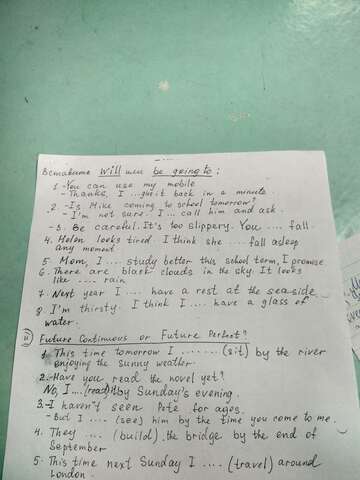 Вставьте Will или be going to:
1. - You can use my mobile
- Thanks, I ... give it back in a minute.
2. - Is Mike coming to school tomorrow?
- I'm not sure. I ... call him and ask.
3. Be careful. It's too slippery. You .... fall.
4. Helen looks tired. I think she .... fall asleep
any moment.
5 Mom, I .... study better this school term, I promise
6. There are black clouds in the sky. It looks
like .... rain
7 Next year I .... have a rest at the seaside
8. I'm thirsty. I think I .... have a glass of
water.
Future Continuous or Future Perfect?
1. This time tomorrow I ....... (sit) by the river
enjoying the sunny weather.
2. - Have you read the novel yet?
No, I .... (read) it by Sunday's evening.
3. - I haven't seen Pete for ages.
- But I .... (see) him by the time you come to me.
4. They .... (build) the bridge by the end of
September
5. This time next Sunday I .... (travel) around
London.